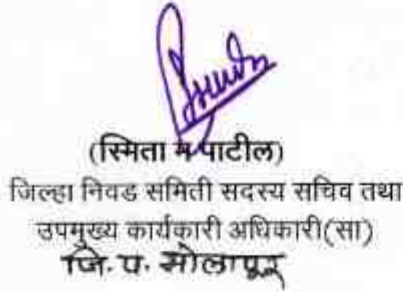 (स्मिता म पाटील)
जिल्हा निवड समिती सदस्य सचिव तथा
उपमुख्य कार्यकारी अधिकारी(सा)
जि. प. सोलापूर